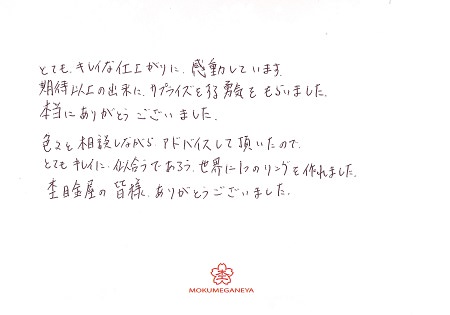 とても、キレイな仕上がりに、感動しています。
期待以上の出来に、サプライズをする勇気をもらいました。
本当にありがとうございました。
色々と相談しながら、アドバイスして頂いたので、
とてもキレイに、似合うであろう、世界に1つのリングを作れました。
杢目金屋の皆様、ありがとうございました。
MOKUMEGANEYA